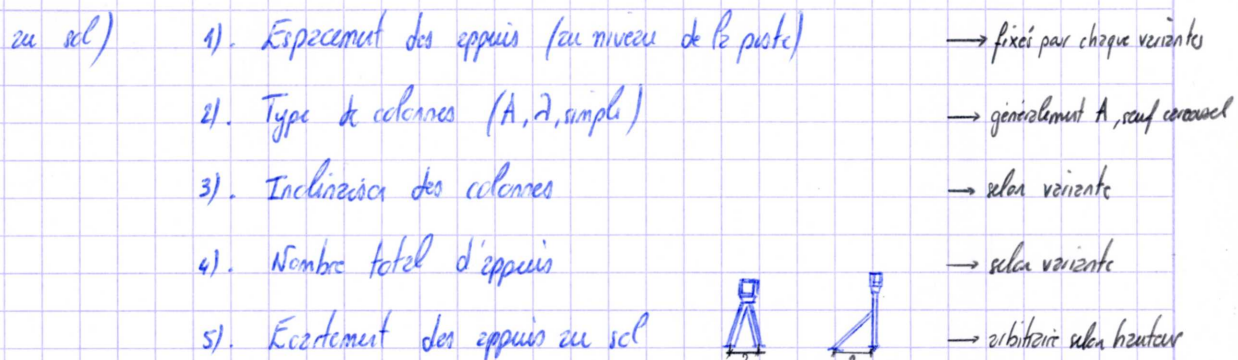 au sol) 1). Espacement des appuis (au niveau de la piste) → fixés par chaque variantes
2). Type de colonnes (A, λ, simple) → généralement A, sauf carousel
3). Inclinaison des colonnes → selon variante
4). Nombre total d'appuis → selon variante
5). Ecartement des appuis au sol → arbitraire selon hauteur